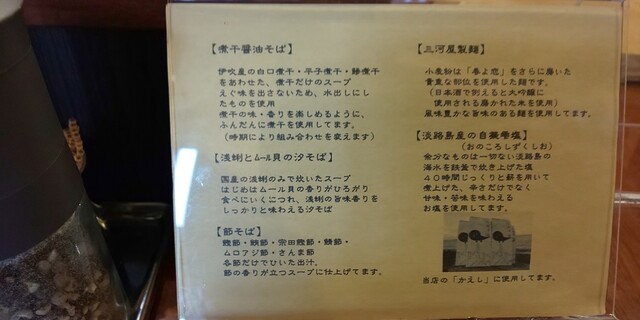 【煮干醤油そば】
伊吹産の白口煮干・平子煮干・鯵煮干
をあわせた、煮干だけのスープ
えぐ味を出さないため、水出しにし
たものを使用
煮干の味・香りを楽しめるように、
ふんだんに煮干を使用してます。
(時期により組み合わせを変えます)
【浅蜊とムール貝の汐そば】
国産の浅蜊のみで炊いたスープ
はじめはムール貝の香りがひろがり
食べにいくにつれ、浅蜊の旨味香りを
しっかりと味わえる汐そば
【節そば】
鰹節・鮪節・宗田鰹節・鯖節・
ムロアジ節・さんま節
各節だけでひいた出汁。
節の香りが立つスープに仕上げてます。
【三河屋製麺】
小麦粉は「春よ恋」をさらに磨いた
貴重な部位を使用した麺です。
(日本酒で例えると大吟醸に
使用される磨かれた米を使用)
風味豊かな旨味のある麺を使用してます。
【淡路島産の自凝雫塩】
(おのころしずくしお)
余分なものは一切ない淡路島の
海水を鉄釜で炊き上げた塩
40時間じっくりと薪を用いて
煮上げた、辛さだけでなく
甘味・苦味を味わえる
お塩を使用してます。
当店の「かえし」に使用してます。